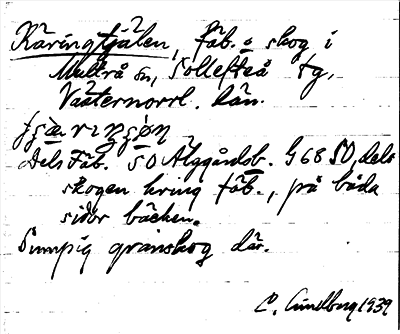 Käringtjälen, fäb. o skog i
Multrå sn, Sollefteå tg,
Västernorrl. län.
Dels Fäb. SO Älggårdsb. G 68 SO, dels
skogen kring fäb., på båda
sidor bäcken.
Sumpig granskog där.
C. Lundberg 1939